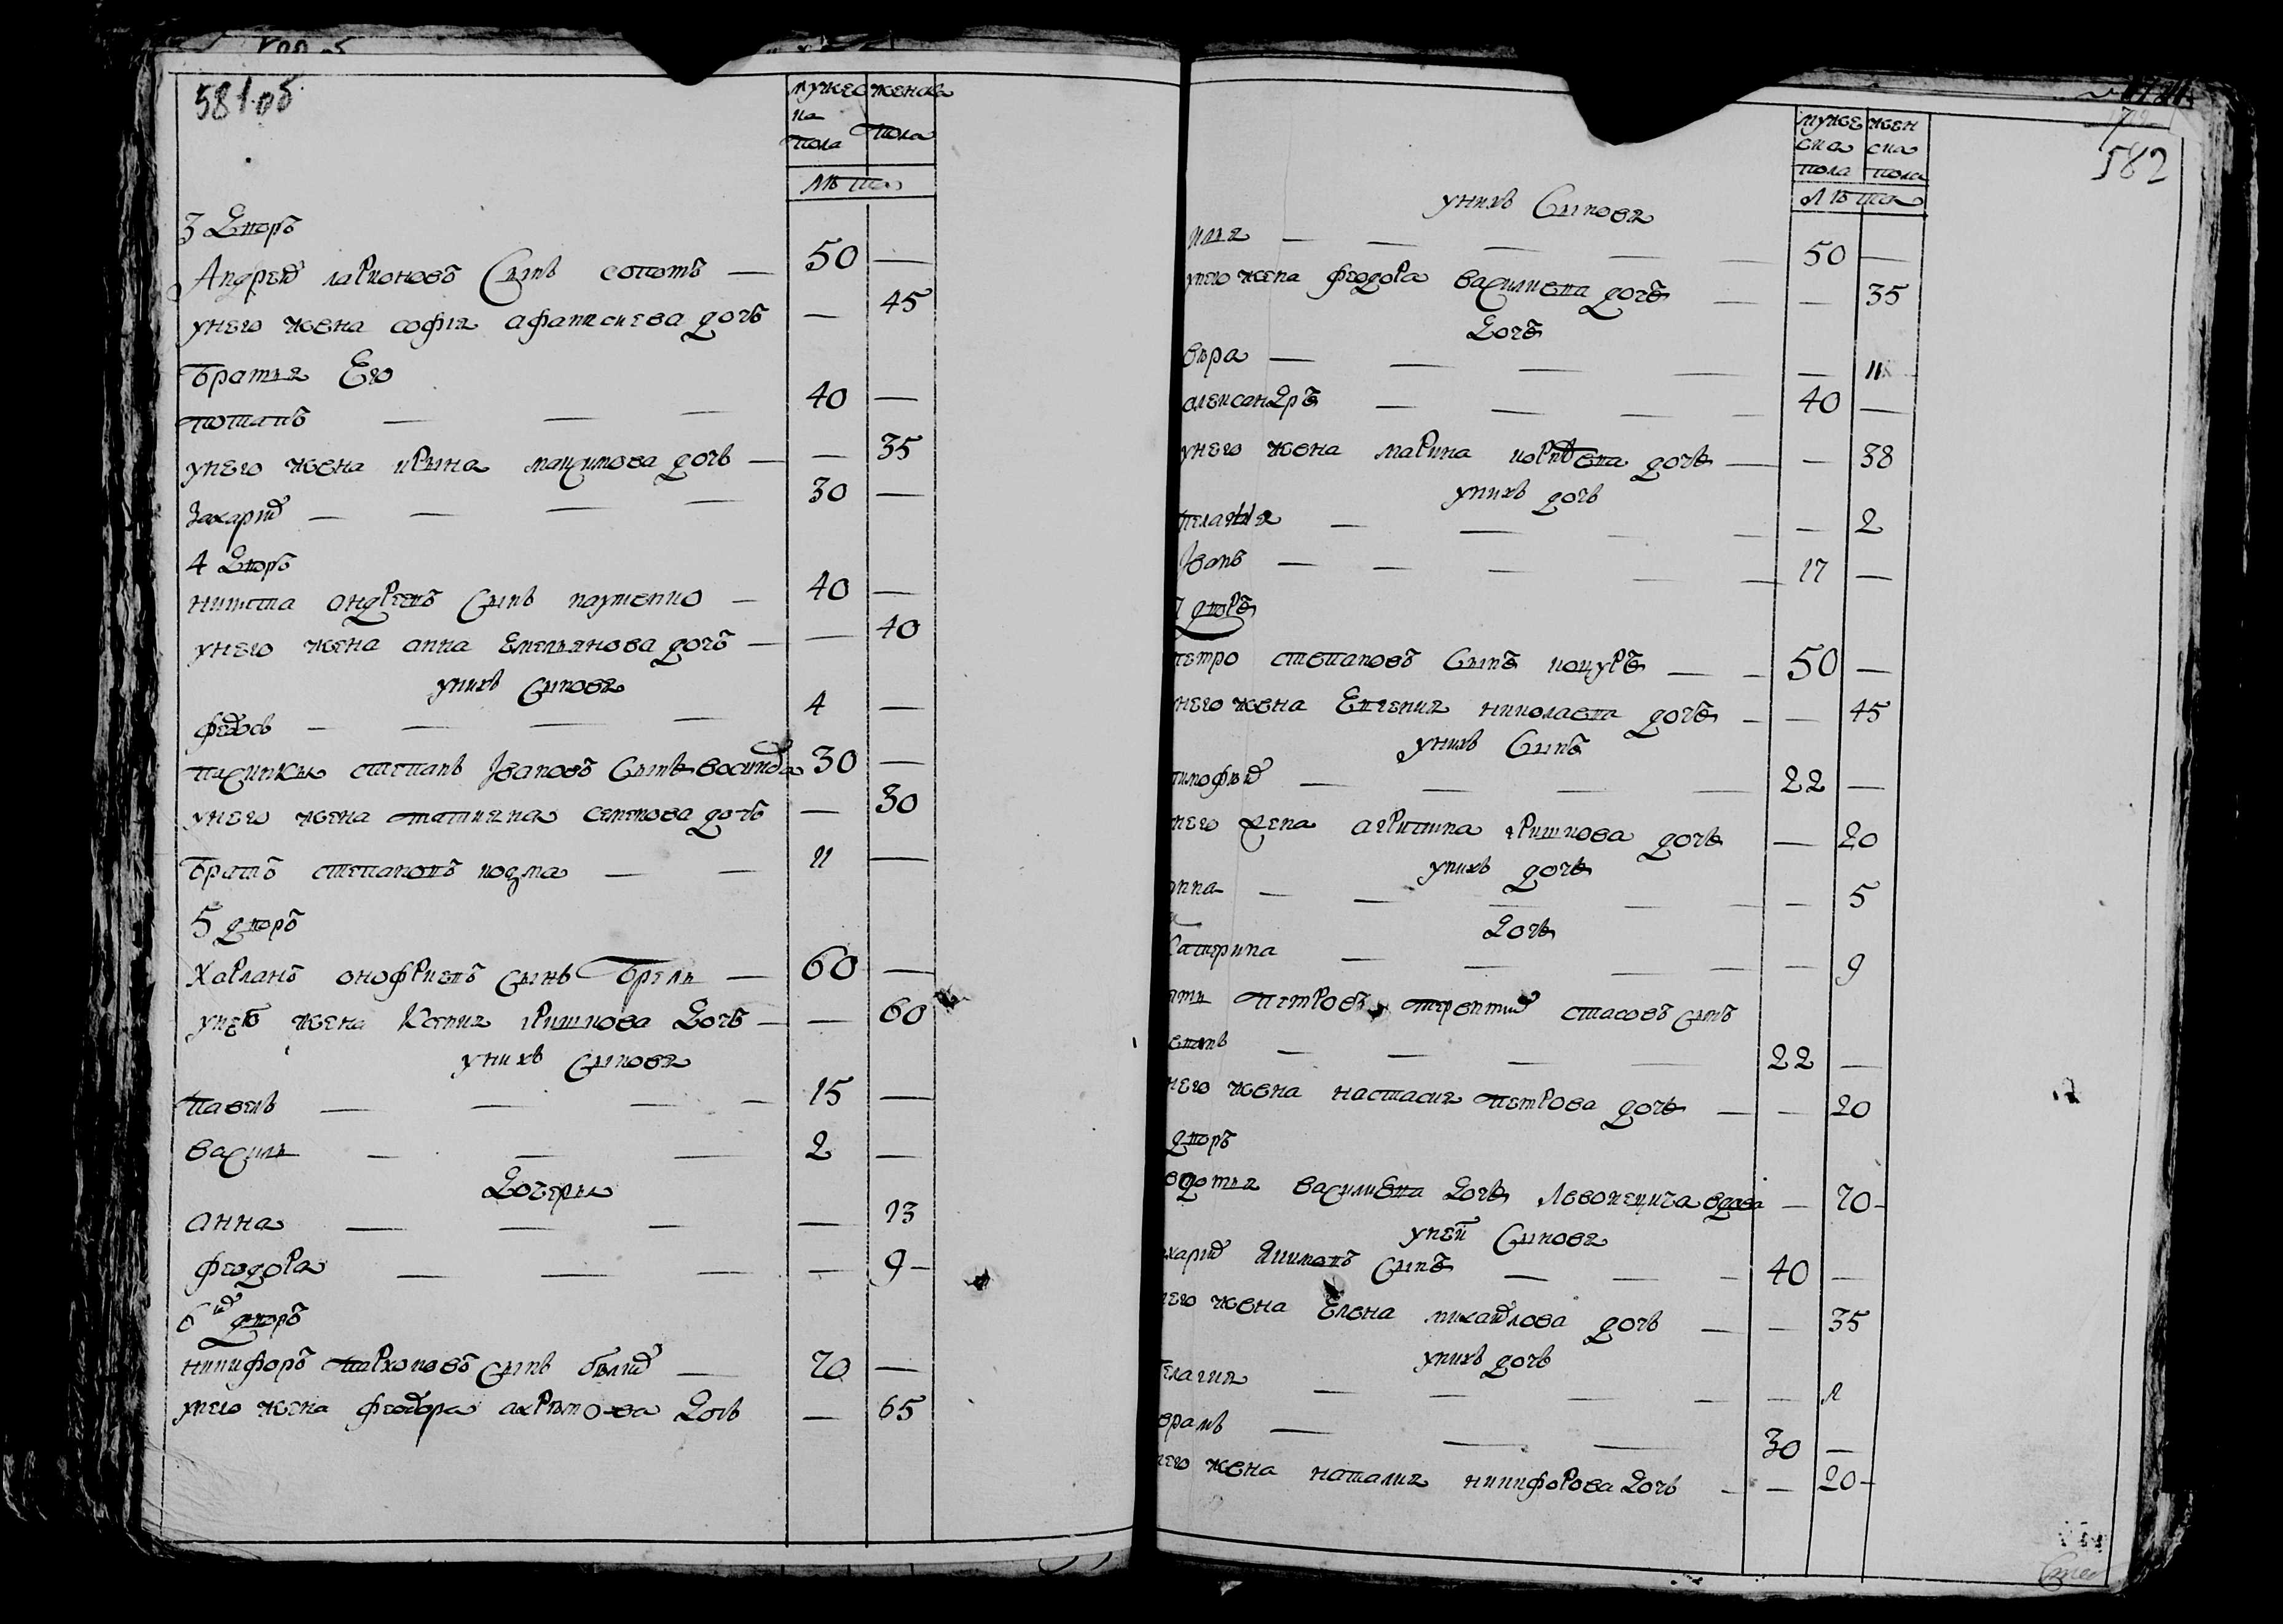 581 об
мужес женска
ка
пола пола
лѣта
3 двор
Андрей ларионовъ Сынъ сопотъ — 50 —
унего жена софія афанасиева дочь — 45
братья Его
потапъ — — — 40 —
унего жена ирына максимова дочь — — 35
Захарий — — — — 30 —
4 двор
никита андреевъ Сынъ — 40 —
унего жена анна Емельянова дочь — — 40
унихъ Сыновя
федось — — — — 4 —
степанъ Івановъ Сынъ 30 —
унего жена татияна семенова дочь — 30
братъ степановъ козма — — 11 —
5 дворъ
Харланъ онофриевъ сынъ брель — 60 —
унего жена Ксения гришкова дочь — — 60
унихъ Сыновя
павелъ — — — — 15 —
василь — — — 2 —
дочерьи
анна — — — — 13
феодора — — — — 9 —
6й дворъ
никифоръ пархоновъ сынъ белий — 70 —
унего жена феодора дочь — 65
582
мужес жен
ска ска
пола пола
лѣта
унихъ Сыновя
илья — — — — — 50 —
унего жена феодора василиева дочь — — 35
дочь
вѣра — — — — — 11
олександръ — — — — 40 —
унего жена марина дочь — — 38
унихъ дочь
пелагия — — — — — 2
Іванъ — — — — — 17 —
7 дворъ
петро степановъ Сынъ коцуръ — — 50 —
него жена Евгения николаева дочь — — 45
унихъ Сынъ
тимофѣй — — — — 22 —
него жена агрипина гришкова дочь — 20
унихъ дочь
анна — — — — — — 5
дочь
Катерина — — — — — 9
петровъ терентий стасовъ сынъ
— — — — 22 —
него жена настасия петрова дочь — — 20
дворъ
василиева дочь вдова — 70 —
уней Сыновя
харий якимовъ сынъ — — — 40 —
него жена Елена михайлова дочь — — 35
унихъ дочь
елагия — — — — —
врамъ — — — 30 —
него жена наталия никифорова дочь — — 20 —